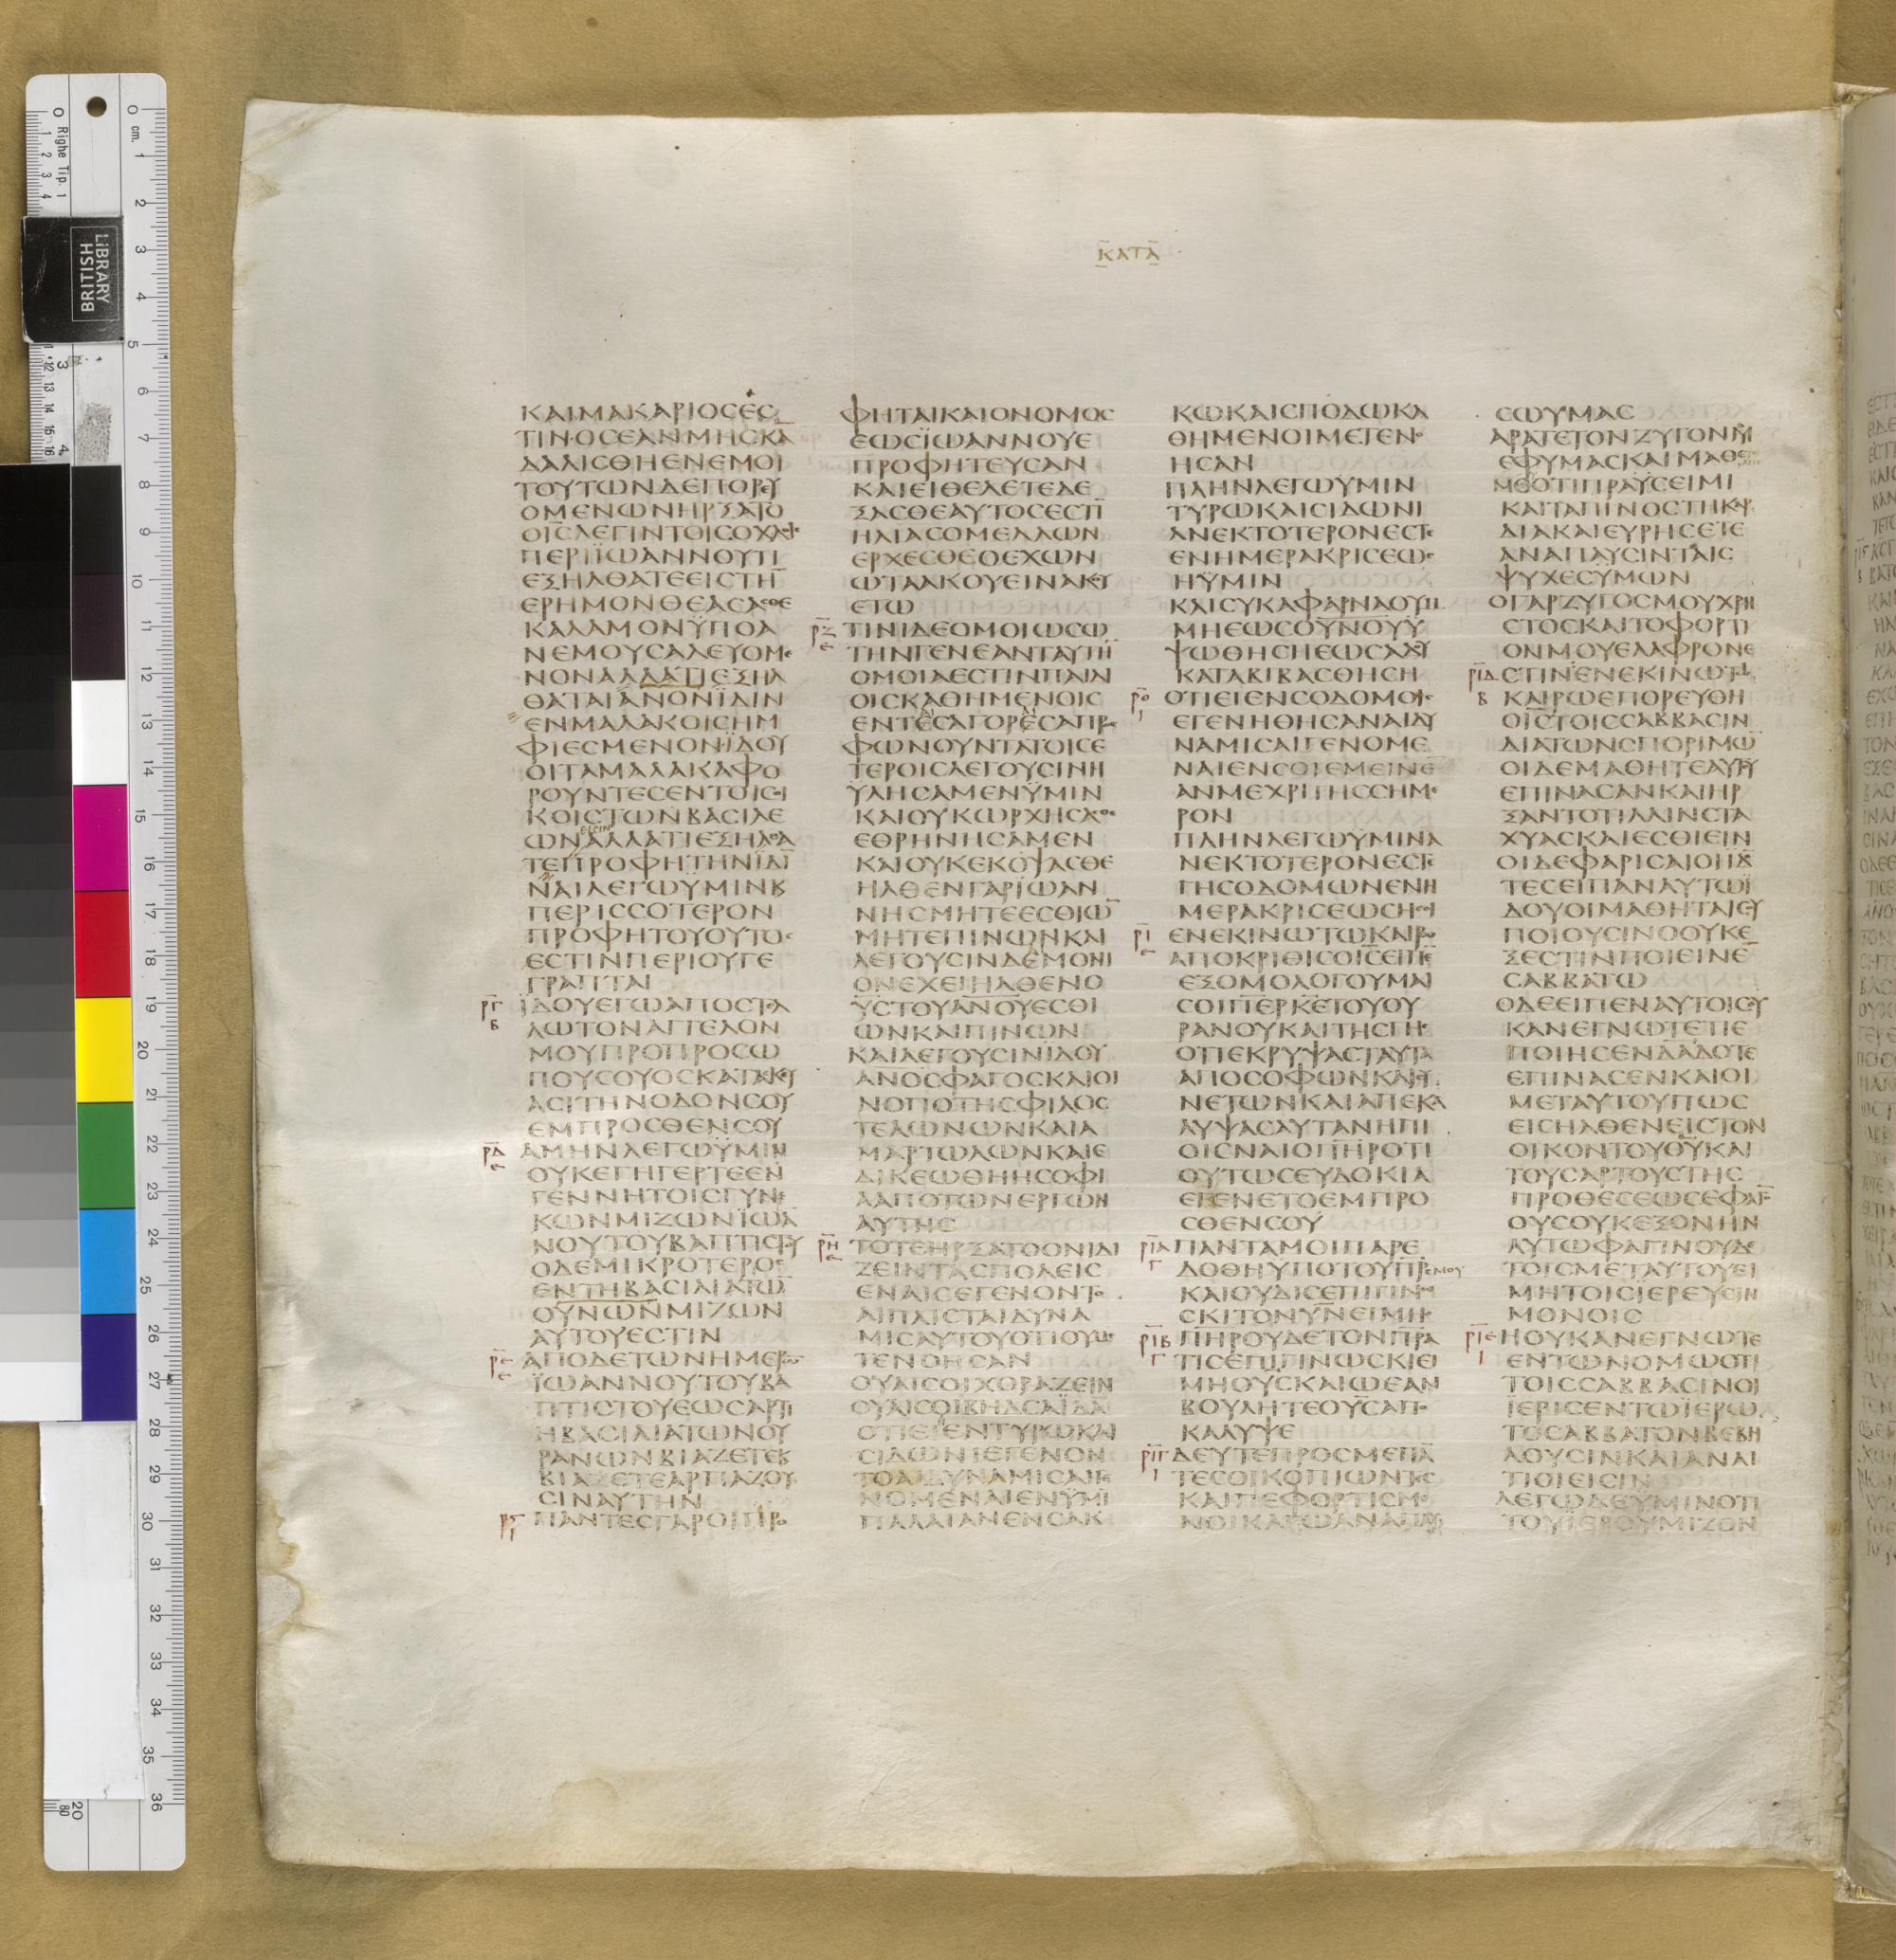 ΚΑΤΑ
ΚΑΙΜΑΚΑΡΙΟϹΕϹ
ΤΙΝΟϹΕΑΝΜΗϹΚΑ
ΔΑΛΙϹΘΗΕΝΕΜΟΙ
ΤΟΥΤΩΝΔΕΠΟΡΕΥ
ΟΜΕΝΩΝΗΡΞΑΤΟ
ΟΙϹΛΕΓΙΝΤΟΙϹΟΧΛΟΙϹ
ΠΕΡΙΪΩΑΝΝΟΥΤΙ
ΕΞΗΛΘΑΤΕΕΙϹΤΗ
ΕΡΗΜΟΝΘΕΑϹΑϹΘΕ
ΚΑΛΑΜΟΝΫΠΟΑ
ΝΕΜΟΥϹΑΛΕΥΟΜΕ
ΝΟΝΑΛΛΑΤΙΕΞΗΛ
ΘΑΤΑΙΑΝΟΝΪΔΙΝ
ΕΝΜΑΛΑΚΟΙϹΗΜ
ΦΙΕϹΜΕΝΟΝΪΔΟΥ
ΟΙΤΑΜΑΛΑΚΑΦΟ
ΡΟΥΝΤΕϹΕΝΤΟΙϹΟΙ
ΚΟΙϹΤΩΝΒΑϹΙΛΕ
ΩΝΑΛΛΑΤΙΕΞΗΛΘΑ
ΤΕΠΡΟΦΗΤΗΝΪΔΙ
ΝΑΙΛΕΓΩΫΜΙΝΚ
ΠΕΡΙϹϹΟΤΕΡΟΝ
ΠΡΟΦΗΤΟΥΟΥΤΟϹ
ΕϹΤΙΝΠΕΡΙΟΥΓΕ
ΓΡΑΠΤΑΙ
ΪΔΟΥΕΓΩΑΠΟϹΤΕΛ
ΛΩΤΟΝΑΓΓΕΛΟΝ
ΜΟΥΠΡΟΠΡΟϹΩ
ΠΟΥϹΟΥΟϹΚΑΤΑϹΚΕΥ
ΑϹΙΤΗΝΟΔΟΝϹΟΥ
ΕΜΠΡΟϹΘΕΝϹΟΥ
ΑΜΗΝΛΕΓΩΫΜΙΝ
ΟΥΚΕΓΗΓΕΡΤΕΕΝ
ΓΕΝΝΗΤΟΙϹΓΥΝΑΙ
ΚΩΝΜΙΖΩΝΪΩΑ
ΝΟΥΤΟΥΒΑΠΤΙϹΤΟΥ
ΟΔΕΜΙΚΡΟΤΕΡΟϹ
ΕΝΤΗΒΑϹΙΛΙΑΤΩ
ΟΥΝΩΝΜΙΖΩΝ
ΑΥΤΟΥΕϹΤΙΝ
ΑΠΟΔΕΤΩΝΗΜΕΡΩ
ΪΩΑΝΝΟΥΤΟΥΒΑ
ΠΤΙϹΤΟΥΕΩϹΑΡΤΙ
ΗΒΑϹΙΛΙΑΤΩΝΟΥ
ΡΑΝΩΝΒΙΑΖΕΤΕΚ
ΒΙΑϹΤΕΑΡΠΑΖΟΥ
ϹΙΝΑΥΤΗΝ
ΠΑΝΤΕϹΓΑΡΟΙΠΡΟ
ΦΗΤΑΙΚΑΙΟΝΟΜΟϹ
ΕΩϹΪΩΑΝΝΟΥΕ
ΠΡΟΦΗΤΕΥϹΑΝ
ΚΑΙΕΙΘΕΛΕΤΕΔΕ
ΞΑϹΘΕΑΥΤΟϹΕϹΤΙ
ΗΛΙΑϹΟΜΕΛΛΩΝ
ΕΡΧΕϹΘΕΟΕΧΩΝ
ΩΤΑΑΚΟΥΕΙΝΑΚΟΥ
ΕΤΩ
ΤΙΝΙΔΕΟΜΟΙΩϹΩ
ΤΗΝΓΕΝΕΑΝΤΑΥΤΗ
ΟΜΟΙΑΕϹΤΙΝΠΑΙΔΙ
ΟΙϹΚΑΘΗΜΕΝΟΙϹ
ΕΝΤΕϹΑΓΟΡΕϹΑΠΡΟϹ
ΦΩΝΟΥΝΤΑΤΟΙϹΕ
ΤΕΡΟΙϹΛΕΓΟΥϹΙΝΗ
ΥΛΗϹΑΜΕΝΫΜΙΝ
ΚΑΙΟΥΚΩΡΧΗϹΑϹΘΕ
ΕΘΡΗΝΗϹΑΜΕΝ
ΚΑΙΟΥΚΕΚΟΨΑϹΘΕ
ΗΛΘΕΝΓΑΡΪΩΑΝ
ΝΗϹΜΗΤΕΕϹΘΙΩ
ΜΗΤΕΠΙΝΩΝΚΑΙ
ΛΕΓΟΥϹΙΝΔΕΜΟΝΙ
ΟΝΕΧΕΙΗΛΘΕΝΟ
ΥϹΤΟΥΑΝΟΥΕϹΘΙ
ΩΝΚΑΙΠΙΝΩΝ
ΚΑΙΛΕΓΟΥϹΙΝΪΔΟΥ
ΑΝΟϹΦΑΓΟϹΚΑΙΟΙ
ΝΟΠΟΤΗϹΦΙΛΟϹ
ΤΕΛΩΝΩΝΚΑΙΑ
ΜΑΡΤΩΛΩΝΚΑΙΕ
ΔΙΚΕΩΘΗΗϹΟΦΙ
ΑΑΠΟΤΩΝΕΡΓΩΝ
ΑΥΤΗϹ
ΤΟΤΕΗΡΞΑΤΟΟΝΙΔΙ
ΖΕΙΝΤΑϹΠΟΛΕΙϹ
ΕΝΑΙϹΕΓΕΝΟΝΤΟ
ΑΙΠΛΙϹΤΑΙΔΥΝΑ
ΜΙϹΑΥΤΟΥΟΤΙΟΥΜΕ
ΤΕΝΟΗϹΑΝ
ΟΥΑΙϹΟΙΧΟΡΑΖΕΙΝ
ΟΥΑΙϹΟΙΒΗΔϹΑΪΔΑ
ΟΤΙΕΙΕΝΤΥΡΩΚΑΙ
ϹΙΔΩΝΙΕΓΕΝΟΝ
ΤΟΑΙΔΥΝΑΜΙϹΑΙΓΕ
ΝΟΜΕΝΑΙΕΝΥΜΙ
ΠΑΛΑΙΑΝΕΝϹΑΚ
ΚΩΚΑΙϹΠΟΔΩΚΑ
ΘΗΜΕΝΟΙΜΕΤΕΝΟ
ΗϹΑΝ
ΠΛΗΝΛΕΓΩΫΜΙΝ
ΤΥΡΩΚΑΙϹΙΔΩΝΙ
ΑΝΕΚΤΟΤΕΡΟΝΕϹΤΕ
ΕΝΗΜΕΡΑΚΡΙϹΕΩϹ
ΗΫΜΙΝ
ΚΑΙϹΥΚΑΦΑΡΝΑΟΥΜ
ΜΗΕΩϹΟΥΝΟΥΫ
ΨΩΘΗϹΗΕΩϹΑΔΟΥ
ΚΑΤΑΒΙΒΑϹΘΗϹΗ
ΟΤΙΕΙΕΝϹΟΔΟΜΟΙϹ
ΕΓΕΝΗΘΗϹΑΝΑΙΔΥ
ΝΑΜΙϹΑΙΓΕΝΟΜΕ
ΝΑΙΕΝϹΟΙΕΜΕΙΝΕ
ΑΝΜΕΧΡΙΤΗϹϹΗΜΕ
ΡΟΝ
ΠΛΗΝΛΕΓΩΫΜΙΝΑ
ΝΕΚΤΟΤΕΡΟΝΕϹΤΕ
ΓΗϹΟΔΟΜΩΝΕΝΗ
ΜΕΡΑΚΡΙϹΕΩϹΗϹΟΙ
ΕΝΕΚΙΝΩΤΩΚΑΙΡΩ
ΑΠΟΚΡΙΘΙϹΟΙϹΕΙΠΕ
ΕΞΟΜΟΛΟΓΟΥΜΑΙ
ϹΟΙΠΕΡΚΕΤΟΥΟΥ
ΡΑΝΟΥΚΑΙΤΗϹΓΗϹ
ΟΤΙΕΚΡΥΨΑϹΤΑΥΤΑ
ΑΠΟϹΟΦΩΝΚΑΙϹΥ
ΝΕΤΩΝΚΑΙΑΠΕΚΑ
ΛΥΨΑϹΑΥΤΑΝΗΠΙ
ΟΙϹΝΑΙΟΠΗΡΟΤΙ
ΟΥΤΩϹΕΥΔΟΚΙΑ
ΕΓΕΝΕΤΟΕΜΠΡΟ
ϹΘΕΝϹΟΥ
ΠΑΝΤΑΜΟΙΠΑΡΕ
ΔΟΘΗΥΠΟΤΟΥΠΡϹΜΟΥ
ΚΑΙΟΥΔΙϹΕΠΙΓΙΝΩ
ϹΚΙΤΟΝΥΝΕΙΜΗ
ΠΗΡΟΥΔΕΤΟΝΠΡΑ
ΤΙϹΕΠΙΓΙΝΩϹΚΙΕΙ
ΜΗΟΥϹΚΑΙΩΕΑΝ
ΒΟΥΛΗΤΕΟΥϹΑΠΟ
ΚΑΛΥΨΕ
ΔΕΥΤΕΠΡΟϹΜΕΠΑ
ΤΕϹΟΙΚΟΠΙΩΝΤΕϹ
ΚΑΙΠΕΦΟΡΤΙϹΜΕ
ΝΟΙΚΑΓΩΑΝΑΠΑΥ
ϹΩΥΜΑϹ
ΑΡΑΤΕΤΟΝΖΥΓΟΝΜΟΥ
ΕΦΥΜΑϹΚΑΙΜΑΘΕ
ΜΟΟΤΙΠΡΑΥϹΕΙΜΙ
ΚΑΙΤΑΠΙΝΟϹΤΗΚΑΡ
ΔΙΑΚΑΙΕΥΡΗϹΕΤΕ
ΑΝΑΠΑΥϹΙΝΤΑΙϹ
ΨΥΧΕϹΫΜΩΝ
ΟΓΑΡΖΥΓΟϹΜΟΥΧΡΗ
ϹΤΟϹΚΑΙΤΟΦΟΡΤΙ
ΟΝΜΟΥΕΛΑΦΡΟΝΕ
ϹΤΙΝΕΝΕΚΙΝΩΤΩ
ΚΑΙΡΩΕΠΟΡΕΥΘΗ
ΟΙϹΤΟΙϹϹΑΒΒΑϹΙΝ
ΔΙΑΤΩΝϹΠΟΡΙΜΩ
ΟΙΔΕΜΑΘΗΤΕΑΥΤΟΥ
ΕΠΙΝΑϹΑΝΚΑΙΗΡ
ΞΑΝΤΟΤΙΛΛΙΝϹΤΑ
ΧΥΑϹΚΑΙΕϹΘΙΕΙΝ
ΟΙΔΕΦΑΡΙϹΑΙΟΙΪΔ
ΤΕϹΕΙΠΑΝΑΥΤΩΪ
ΔΟΥΟΙΜΑΘΗΤΑΙϹΟΥ
ΠΟΙΟΥϹΙΝΟΟΥΚΕ
ΞΕϹΤΙΝΠΟΙΕΙΝΕ
ϹΑΒΒΑΤΩ
ΟΔΕΕΙΠΕΝΑΥΤΟΙϹΟΥ
ΚΑΝΕΓΝΩΤΕΤΙΕ
ΠΟΙΗϹΕΝΔΑΔΟΤΕ
ΕΠΙΝΑϹΕΝΚΑΙΟΙ
ΜΕΤΑΥΤΟΥΠΩϹ
ΕΙϹΗΛΘΕΝΕΙϹΤΟΝ
ΟΙΚΟΝΤΟΥΘΥΚΑΙ
ΤΟΥϹΑΡΤΟΥϹΤΗϹ
ΠΡΟΘΕϹΕΩϹΕΦΑΓ
ΟΥϹΟΥΚΕΞΟΝΗΝ
ΑΥΤΩΦΑΓΙΝΟΥΔΕ
ΤΟΙϹΜΕΤΑΥΤΟΥΕΙ
ΜΗΤΟΙϹΪΕΡΕΥϹΙΝ
ΜΟΝΟΙϹ
ΗΟΥΚΑΝΕΓΝΩΤΕ
ΕΝΤΩΝΟΜΩΟΤΙ
ΤΟΙϹϹΑΒΒΑϹΙΝΟΙ
ΪΕΡΙϹΕΝΤΩΪΕΡΩ
ΤΟϹΑΒΒΑΤΟΝΒΕΒΗ
ΛΟΥϹΙΝΚΑΙΑΝΑΙ
ΤΙΟΙΕΙϹΙΝ
ΛΕΓΩΔΕΥΜΙΝΟΤΙ
ΤΟΥΪΕΡΟΥΜΙΖΟΝ